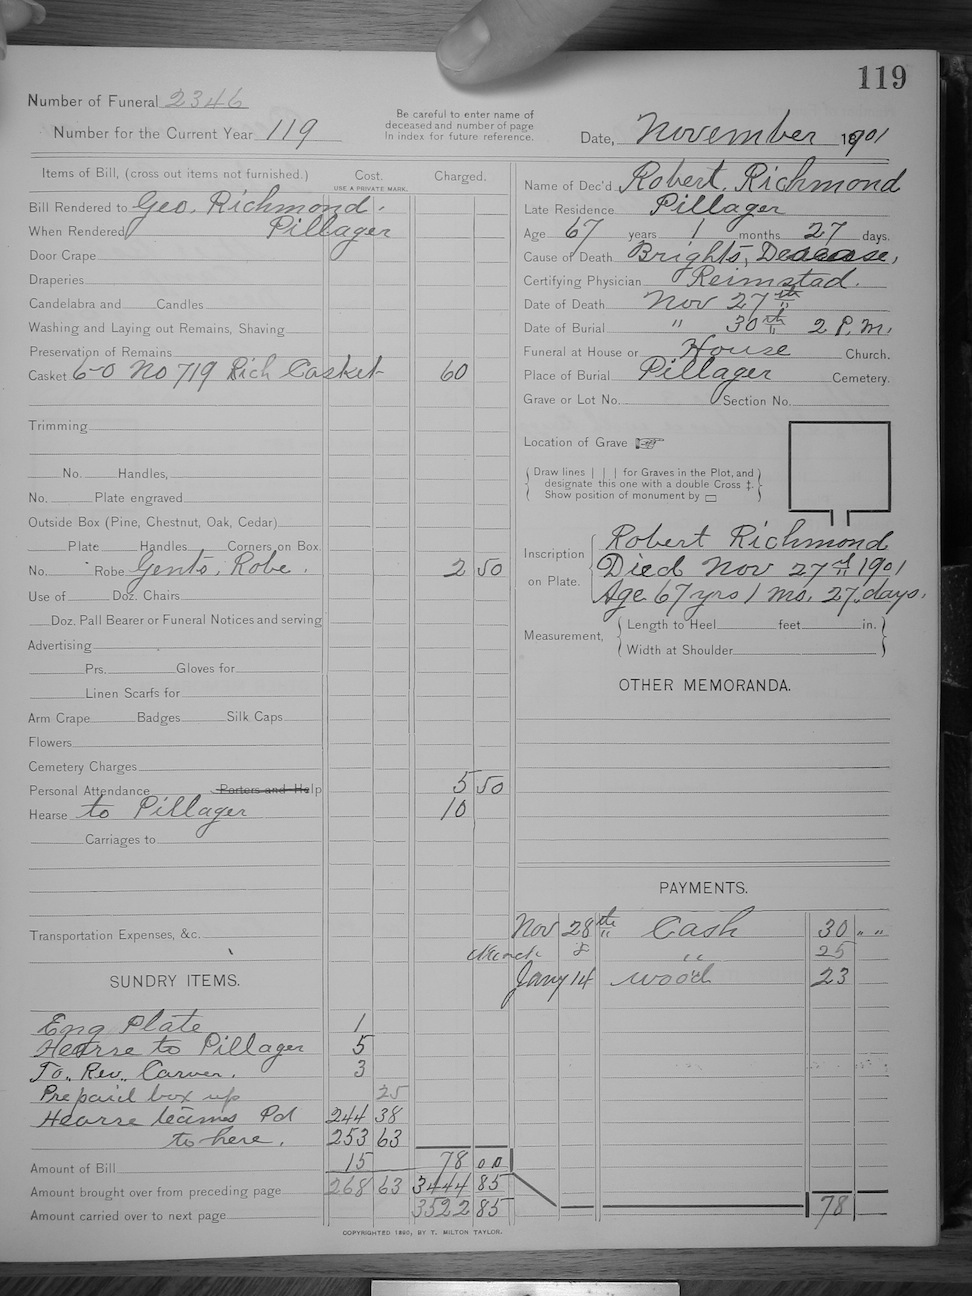 119
Number of Funeral 2346
Number for the Current Year 119
Be careful to enter name of
deceased and number of page
in index for future reference.
Date, November 1901
Items of Bill, (cross out items not furnished.) Cost. Charged.
USE A PRIVATE MARK.
Bill Rendered to Geo. Richmond.
When Rendered Pillager
Door Crape
Draperies
Candelabra and Candles
Washing and Laying out Remains, Shaving
Preservation of Remains
Casket 6-0 No 719 Rich Casket 60
Trimming
No. Handles,
No. Plate engraved
Outside Box (Pine, Chestnut, Oak, Cedar)
Plate Handles Corners on Box
No. Robe Gents, Robe. 2 50
Use of Doz. Chairs
Doz. Pall Bearer or Funeral Notices and serving
Advertising
Prs. Gloves for
Linen Scarfs for
Arm Crape Badges Silk Caps
Flowers
Cemetery Charges
Personal Attendance Porters and Help 5 50
Hearse to Pillager 10
Carriages to
Transportation Expenses, &c.
SUNDRY ITEMS.
Eng Plate 1
Hearse to Pillager 5
To., Rev., Carver. 3
Prepaid box up 25
Hearse teams Pd 244 38
to here. 253 63
Amount of Bill 15 78 00
Amount brought over from preceding page 268 63 3444 85
Amount carried over to next page 3522 85
Name of Dec'd Robert. Richmond
Late Residence Pillager
Age 67 years 1 months 27 days.
Cause of Death Brights, Deacase,
Certifying Physician Reimstad.
Date of Death Nov 27th
Date of Burial " 30th 2 P.M.
Funeral at House or House Church.
Place of Burial Pillager Cemetery.
Grave or Lot No. Section No.
Location of Grave
Draw lines | | | for Graves in the Plot, and
designate this one with a double Cross ‡.
Show position of monument by ▭
Inscription on Plate.
Robert Richmond
Died Nov 27th 1901
Age 67 yrs 1 mo. 27, days.
Measurement, Length to Heel feet in.
Width at Shoulder
OTHER MEMORANDA.
PAYMENTS.
Nov 28th Cash 30 " "
March 8 " 25
Jany 14 wood 23
78
COPYRIGHTED 1890, BY T. MILTON TAYLOR.